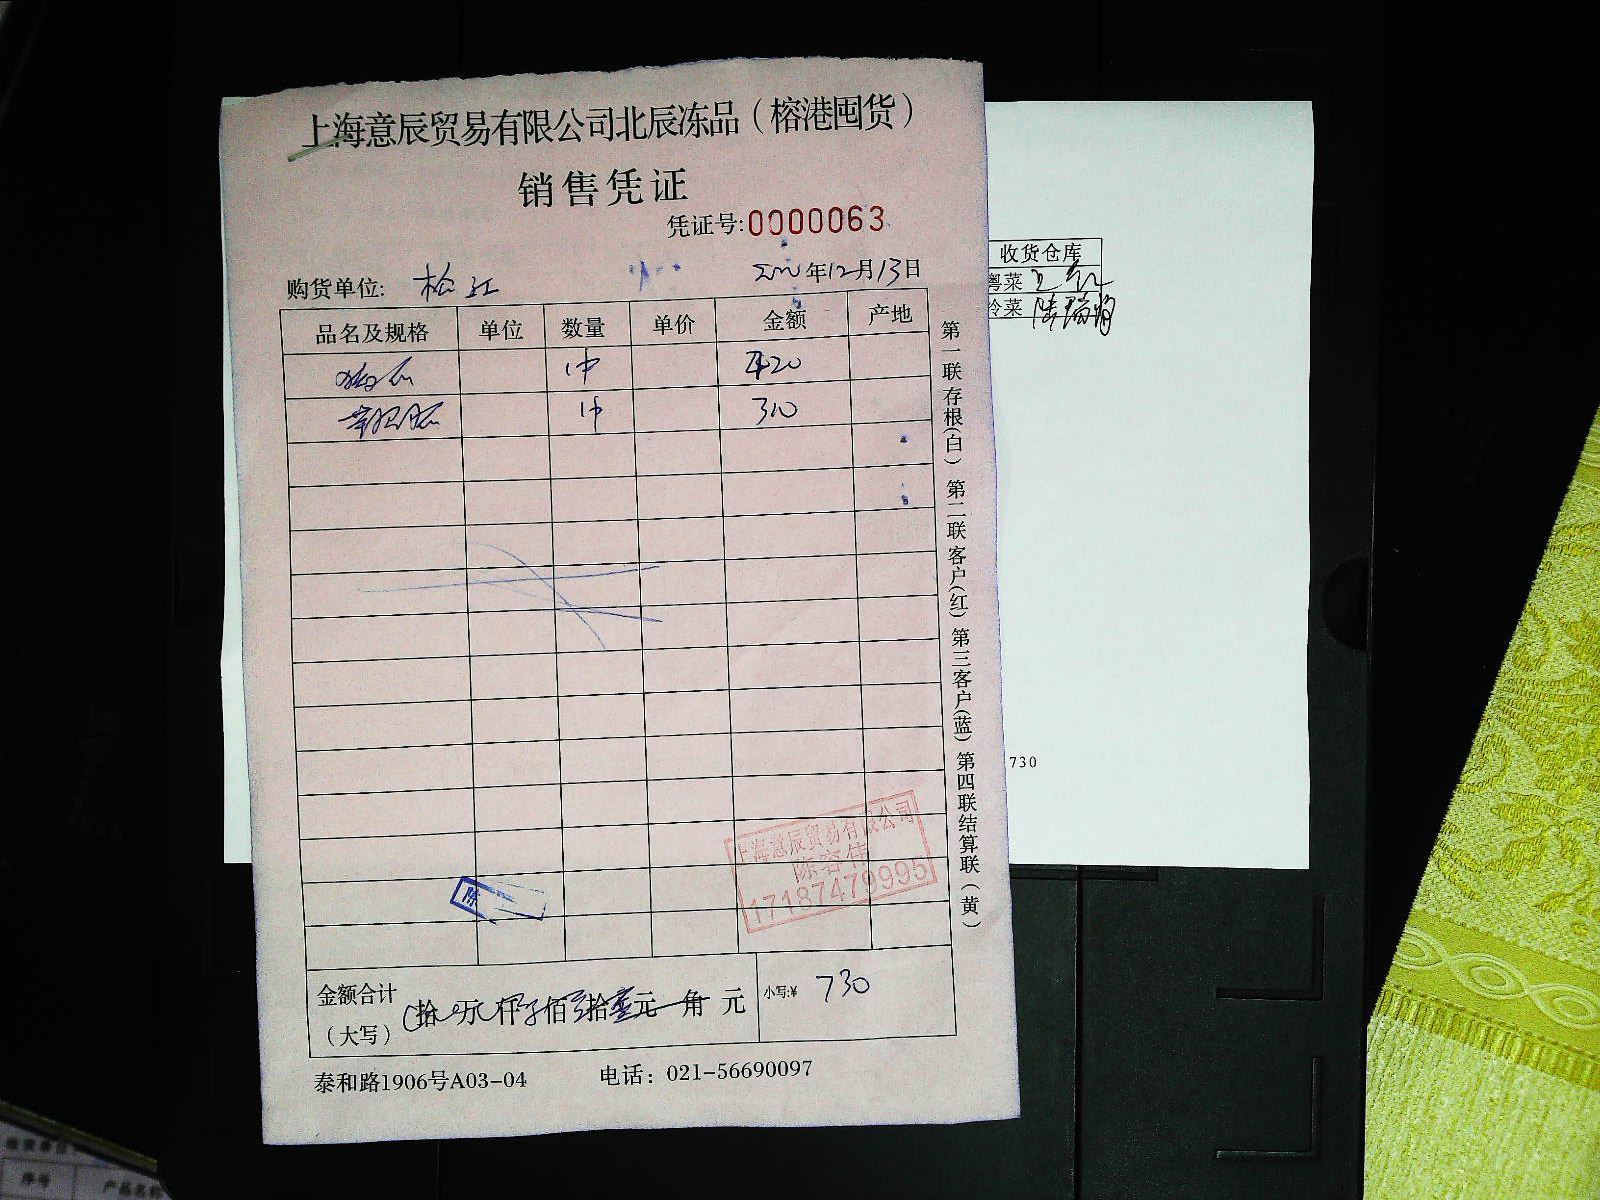 上海意辰贸易有限公司北辰冻品（榕港囤货）
销售凭证
凭证号:0000063
购货单位: 松江 年12月13日
品名及规格 单位 数量 单价 金额 产地
1件 420
1件 310
金额合计（大写） 拾 万 仟 佰 拾 元 角 元 小写:¥ 730
泰和路1906号A03-04 电话：021-56690097
第一联存根(白) 第二联客户(红) 第三客户(蓝) 第四联结算联(黄)
上海意辰贸易有限公司
陈容佳
17187479995
陈
收货仓库
粤菜
冷菜
730
序号 产品名称